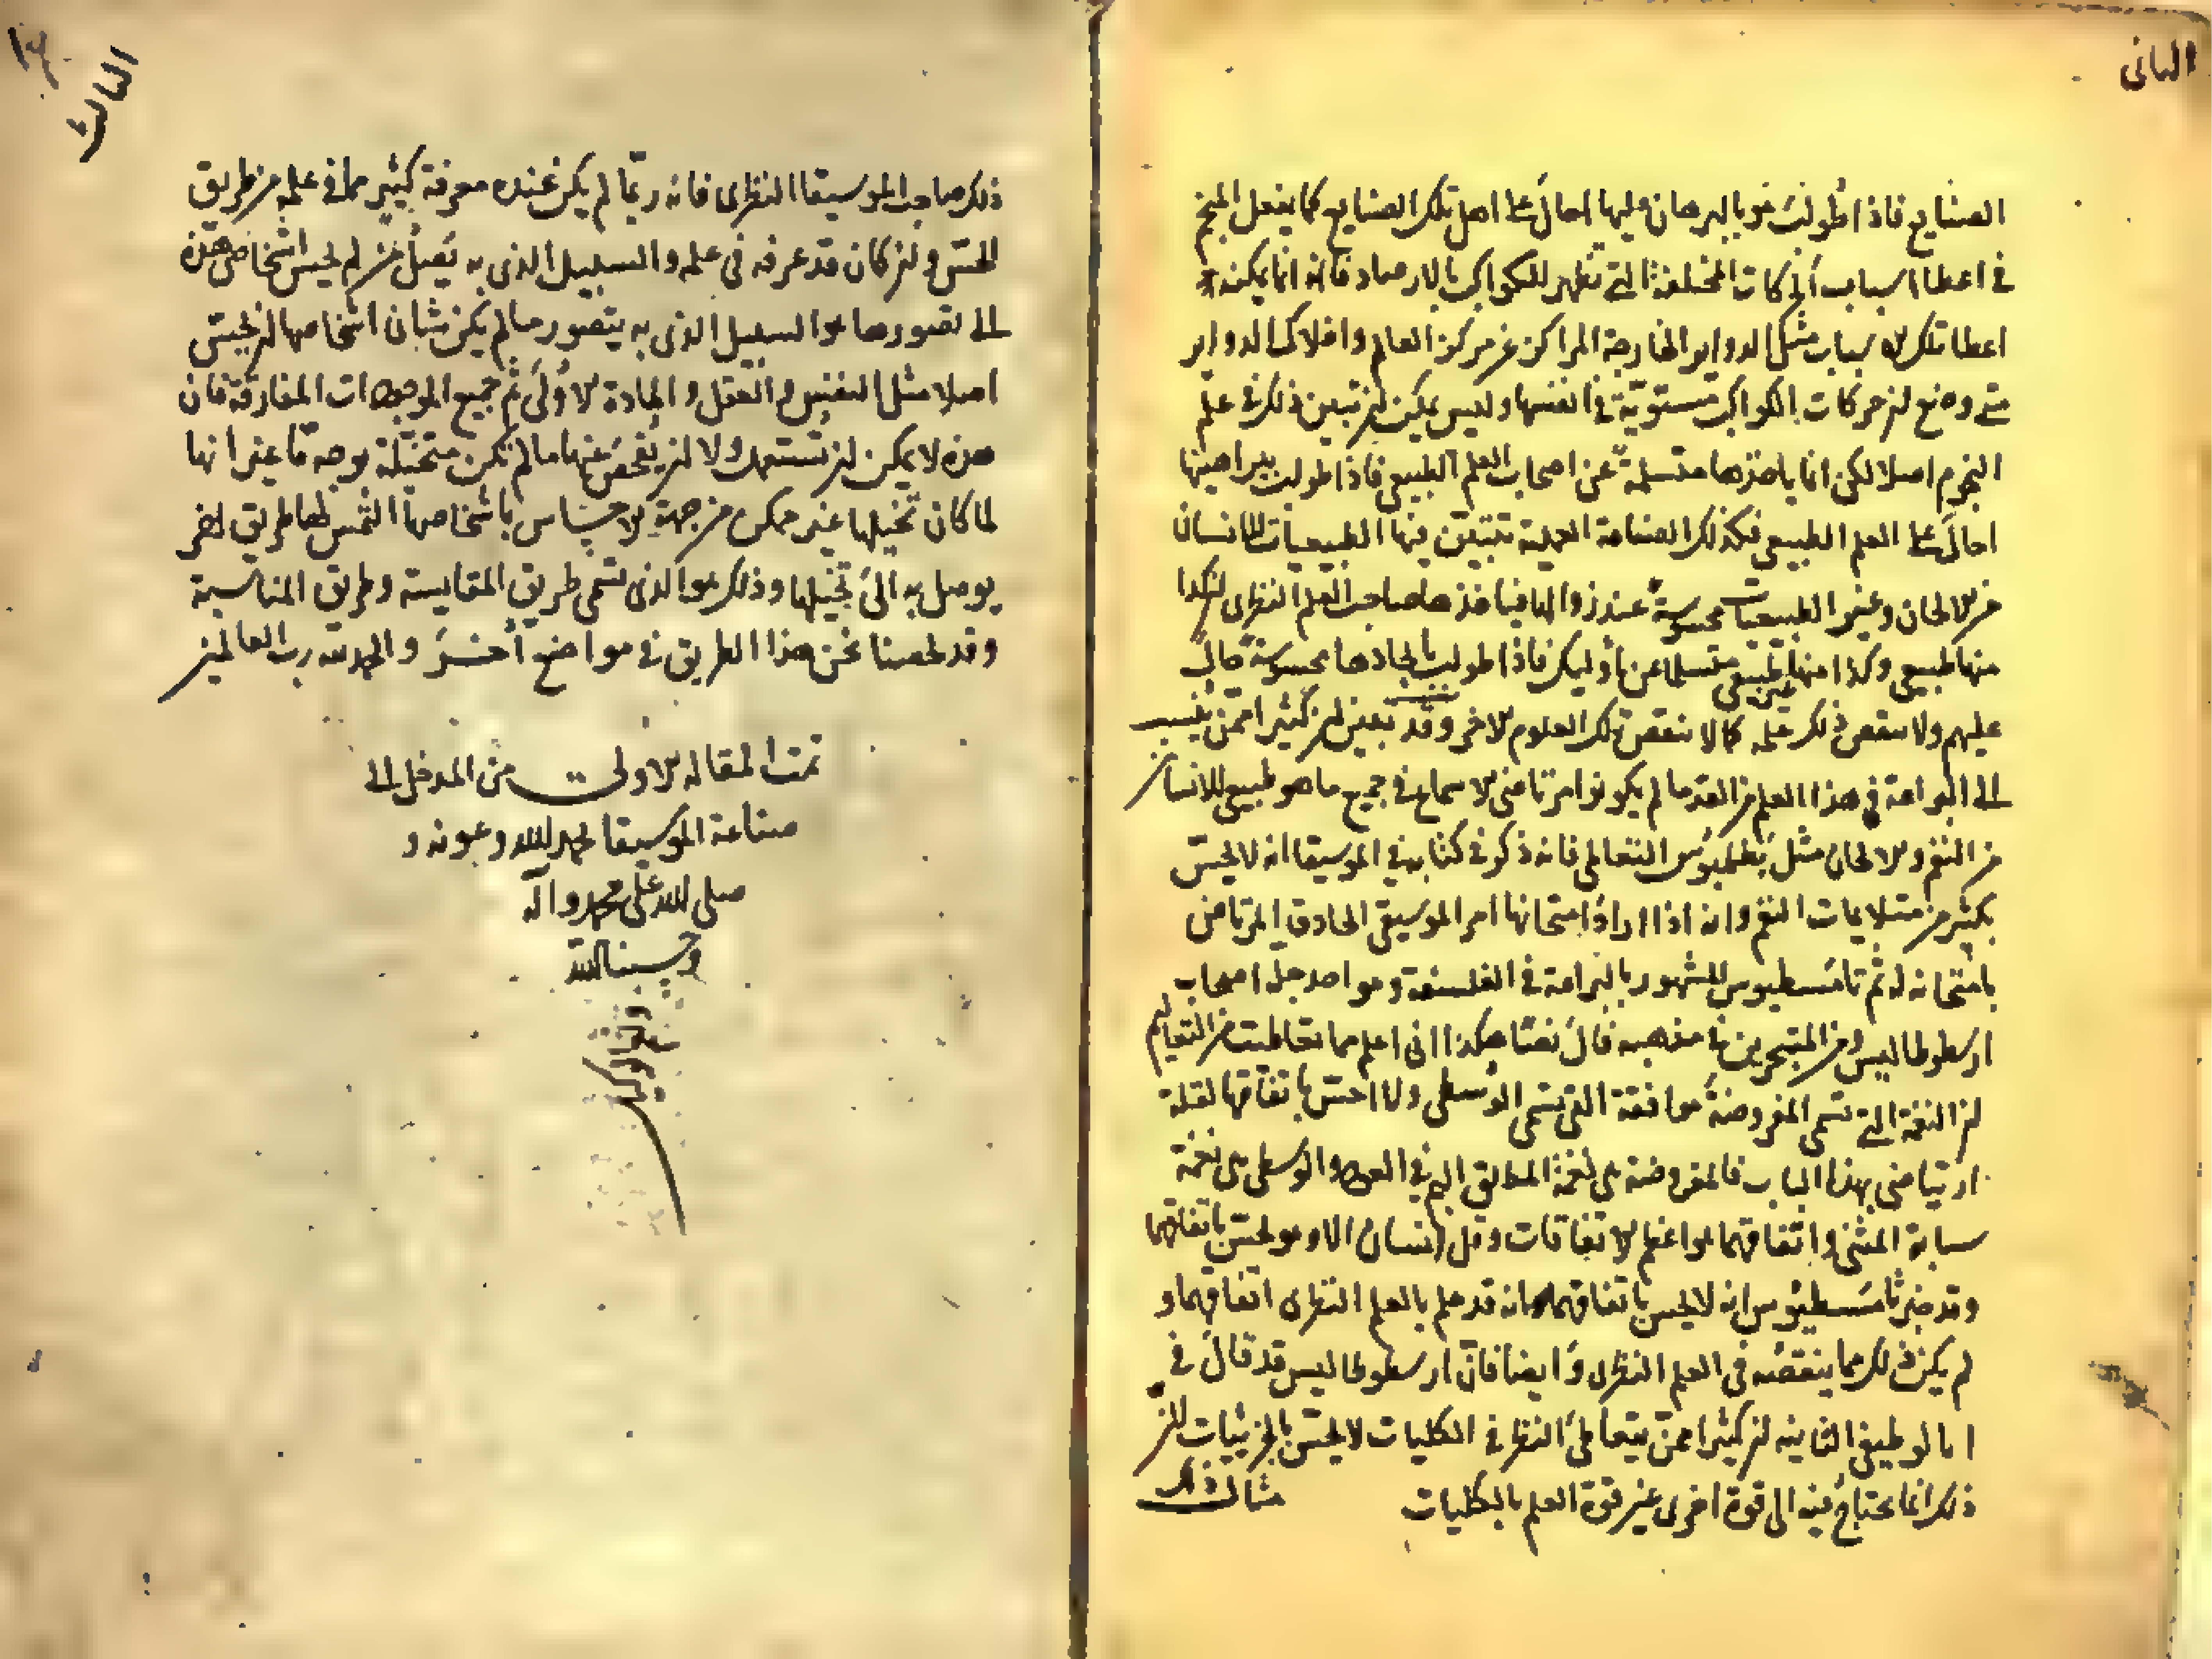 الثانى
الصنايع فاذا طولبت هو بالبرهان عليها احال على اهل تلك الصنايع كما يفعل المنجم
فى اعطا اسباب الحركات المختلفة التى تظهر للكواكب بالارصاد فانه انما يمكنه
اعطا تلك الاسباب مثل الدواير الخارجة المراكز عن مركز العالم وافلاك الدواير
متى وضع ان حركات الكواكب مستوية فى انفسها وليس يمكن ان تبين ذلك فى علم
النجوم اصلا لكن انما ياخذها متسلمة عن اصحاب العلم الطبيعى فاذا طولب ببراهينها
احال على العلم الطبيعى فكذلك الصناعة العملية تتبين فيها الطبيعيات للانسان
من الالحان وغير الطبيعيات محسوسة عند زوالها فياخذها صاحب العلم النظرى ان كذا
منها طبيعى وكذا منها غير طبيعى متسلما عن اوليك فاذا طولب بايجادها محسوسة احال
عليهم ولا ينقص ذلك علمه كما لا ينقص تلك العلوم الاخر وقد تبين ان كثيرا ممن ينسب
الى البراعة فى هذا العلم من القدما لم يكونوا مرتاضى الاسماع فى جميع ما هو طبيعى للانسان
من النغم والالحان مثل بطلميوس التعاليمى فانه ذكر فى كتابه فى الموسيقا انه لا يحس
بكثير من متلايمات النغم وانه اذا اراد امتحانها امر الموسيقى الحاذق المرتاض
بامتحانه له ثم ثامسطيوس المشهور بالبراعة فى الفلسفة وهو احد جلة اصحاب
ارسطوطاليس ومن المتبحرين فى مذهبه قال نصا هكذا انى اعلم مما تعاطيت من التعاليم
ان النغمة التى تسمى المفروضة موافقة التى تسمى الوسطى ولا احس باتفاقها لقلة
ارتياضى بهذا الباب فالمفروضة هى نغمة المطلق البم فى العود والوسطى هى نغمة
سبابة المثنى واتفاقهما هو اعظم الاتفاقات وقل انسان الا وهو يحس باتفاقهما
وقد خبر ثامسطيوس انه لا يحس باتفاقهما وانه قد علم بالعلم النظرى اتفاقهما و
لم يكن ذلك مما ينقصه فى العلم النظرى وايضا فان ارسطوطاليس قد قال فى
انالوطيقى الثانيه ان كثيرا ممن يتعاطى النظر فى الكليات لا يحس بالجزئيات لان
ذلك انما يحتاج فيه الى قوة اخرى غير قوة العلم بالكليات مثال ذلك
الثالث
ذلك صاحب الموسيقا النظرى فانه ربما لم يكن عنده معرفة كثير مما فى علمه من طريق
الحس وان كان قد عرفه فى علمه والسبيل الذى به يصل من لم يحس اشخاص هذه
الى تصورها هو السبيل الذى به يتصور ما لم يكن شان اشخاصها ان يحس
اصلا مثل النفس والعقل والمادة الاولى ثم جميع الموجودات المفارقة فان
هذه لا يمكن ان تستعمل ولا ان يفحص عنها ما لم تكن متخيلة بوجه ما غير انها
لما كان تخيلها غير ممكن من جهة الاحساس باشخاصها التمس لها طريق اخر
يوصل به الى تخيلها وذلك هو الذى تسمى طريق المقايسة وطريق المناسبة
وقد لخصنا نحن هذا الطريق فى مواضع اخر والحمد لله رب العالمين
تمت المقالة الاولى من المدخل الى
صناعة الموسيقا بحمد الله وعونه و
صلى الله على محمد وآله
وحسبنا الله
ونعم الوكيل